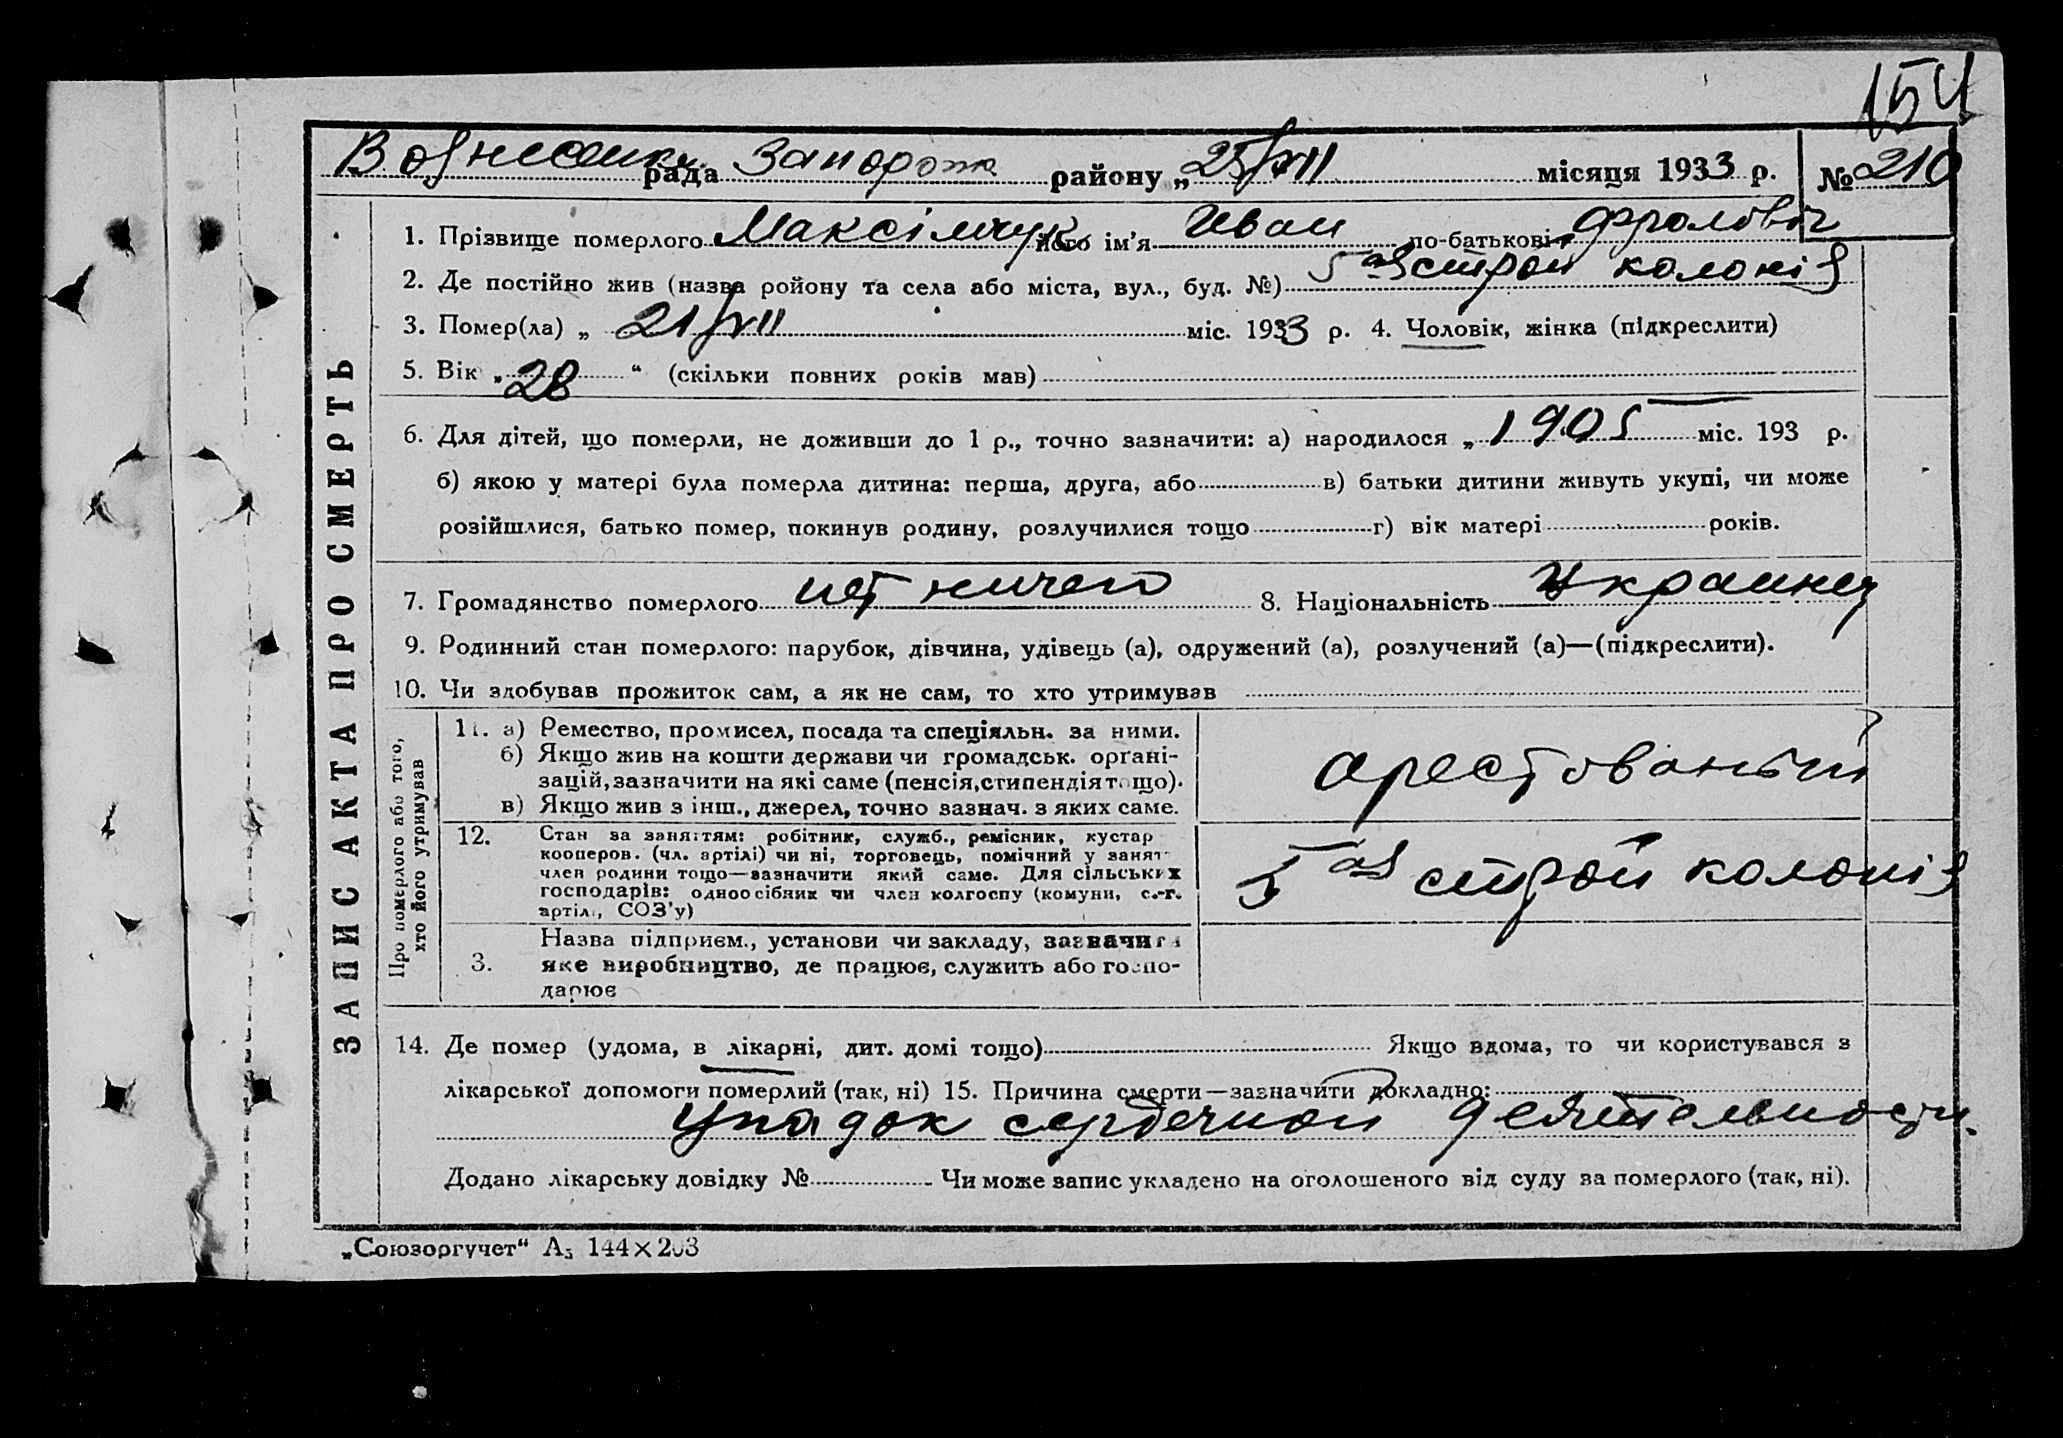 154
Вознесенк. рада Запорож району „25/VII місяця 1933 р. № 210
ЗАПИС АКТА ПРО СМЕРТЬ
1. Прізвище померлого Максімчук його ім’я Иван по-батькові Фролович
2. Де постійно жив (назва ройону та села або міста, вул., буд. №) 5ая строй колонія
3. Помер(ла) „ 21/VII міс. 1933 р. 4. Чоловік, жінка (підкреслити)
5. Вік „ 28 “ (скільки повних років мав)
6. Для дітей, що померли, не доживши до 1 р., точно зазначити: а) народилося „ 1905 міс. 193 р.
б) якою у матері була померла дитина: перша, друга, або в) батьки дитини живуть укупі, чи може
розійшлися, батько помер, покинув родину, розлучилися тощо г) вік матері років.
7. Громадянство померлого нет ничего 8. Національність Украинец
9. Родинний стан померлого: парубок, дівчина, удівець (а), одружений (а), розлучений (а)—(підкреслити).
10. Чи здобував прожиток сам, а як не сам, то хто утримував
Про померлого або того,
хто його утримував
11. а) Ремество, промисел, посада та спеціяльн. за ними.
б) Якщо жив на кошти держави чи громадськ. орґані-
зацій, зазначити на які саме (пенсія, стипендія тощо).
в) Якщо жив з інш., джерел, точно зазнач. з яких саме.
арестованый
12. Стан за заняттям: робітник, служб., ремісник, кустар
кооперов. (чл. артілі) чи ні, торговець, помічний у занят
член родини тощо—зазначити який саме. Для сільських
господарів: одноосібник чи член колгоспу (комуни, с.-г.
артілі, СОЗ’у)
5ая строй колонія
3. Назва підприєм., установи чи закладу, зазначити
яке виробництво, де працює, служить або госпо-
дарює
14. Де помер (удома, в лікарні, дит. домі тощо) Якщо вдома, то чи користувався з
лікарської допомоги померлий (так, ні) 15. Причина смерти—зазначити докладно:
упадок сердечной деятельности.
Додано лікарську довідку № Чи може запис укладено на оголошеного від суду за померлого (так, ні).
„Союзоргучет“ А5 144×203